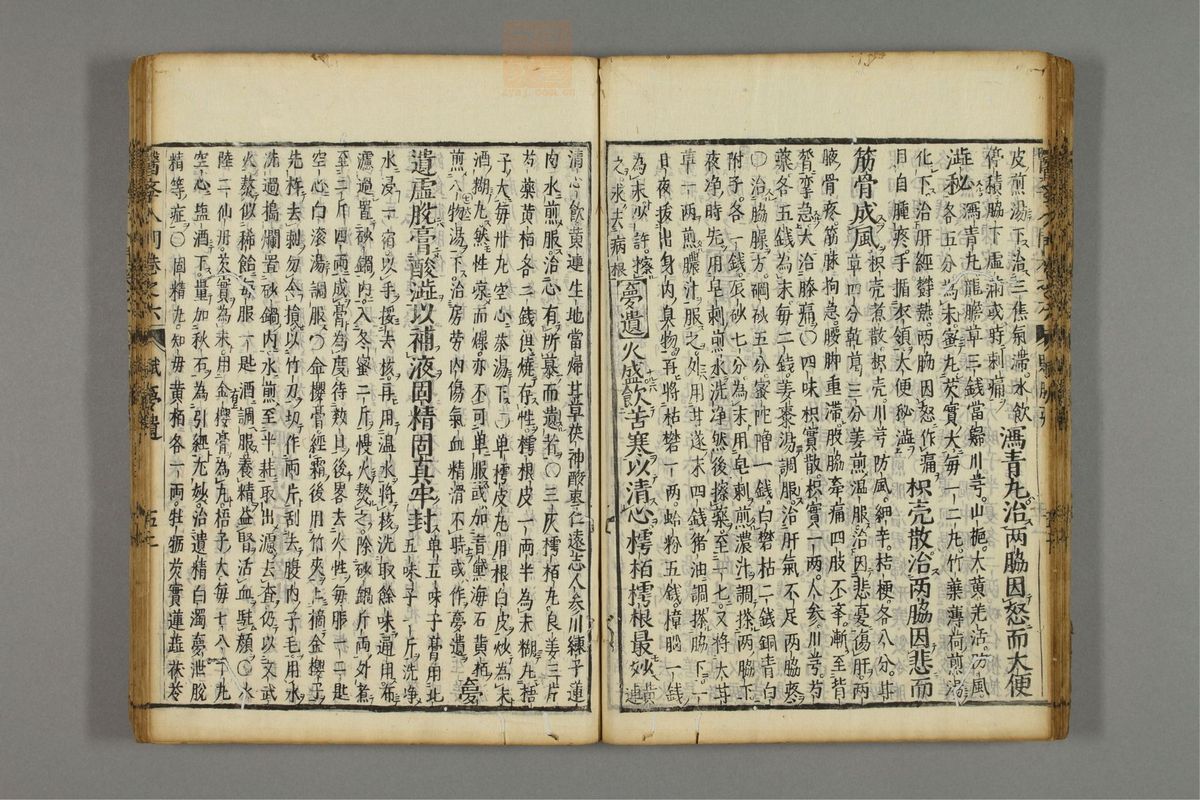 皮煎湯下治三焦氣滯水飲
停積脇下虛滿或時刺痛
瀉青丸治兩脇因怒而大便
澁秘
瀉青丸龍膽草三錢當歸川芎山梔大黃羌活防風
各一錢五分為末蜜丸芡實大每一二丸竹葉薄荷煎湯
化下治肝經欝熱兩脇因怒作痛
目自腫疼手循衣領大便秘澁
枳壳散治兩脇因悲而
筋骨成風
枳壳煮散枳壳川芎防風細辛桔梗各八分甘
草四分乾葛三分姜煎温服治因悲憂傷肝兩
腋骨疼筋脉拘急腰脚重滯股脇牽痛四肢不 漸至背
膂攣急大治脇痛〇四味枳實散枳實一兩人参川芎芍
藥各五錢為末每二錢姜棗湯調服治肝氣不足兩脇疼
〇治脇臊方硇砂五分蜜陀僧一錢白礬枯二錢銅青白
附子各一錢辰砂七分為末用皂刺煎濃汁調搽兩脇下
夜净時先用皂刺煎水洗净然後搽藥至二七又將大甘
草一兩煎膿汁服之外用甘遂末四錢猪油調搽脇下一
日夜拔出身内臭物再將枯礬一兩蛤粉五錢樟腦一錢
為末少許擦
之永去病根
夢遺
火盛飲苦寒以清心樗栢樗根最妙
黃
連
清心飲黃連生地當歸甘草茯神酸棗仁遠志人参川練子蓮
肉水煎服治心有所慕而遺者〇三灰樗栢丸良姜三片
芍藥黃栢各二錢俱燒存性樗根皮一両半為末糊丸梧
子大每卅丸空心茶湯下〇單樗皮丸用根白皮炒為末
酒糊丸然性凉而燥亦不可單服或加青黛海石黃栢
煎八物湯下治房劳内傷氣血精滑不時或作夢遺
夢
遺虛脫膏酸澁以補液固精固真牢封
單五味子膏用北
五味子一斤洗净
水浸一宿以手挼去核再用温水將核洗取餘味通用布
濾過置砂鍋内入冬蜜二斤慢火熬之除砂鍋斤両外煮
至二斤四両成膏為度待数日後畧去火性每服一二匙
空心白滾湯調服〇金櫻膏經霜後用竹夾上摘金櫻子
先杵去刺勿令損以竹刀切作両片刮去腹内子毛用水
洗過搗爛置砂鍋内水煎至半耗取出濾去查仍以文武
火熬似稀飴每服一匙酒調服養精益腎活血駐顔〇水
陸二仙丹芡實為末用金櫻膏為丸梧子大每七八十丸
空心塩酒下量加秋石為引經尤妙治遺精白濁夢泄脫
精等症〇固精丸知母黃栢各一両牡蛎芡實蓮蕋茯苓